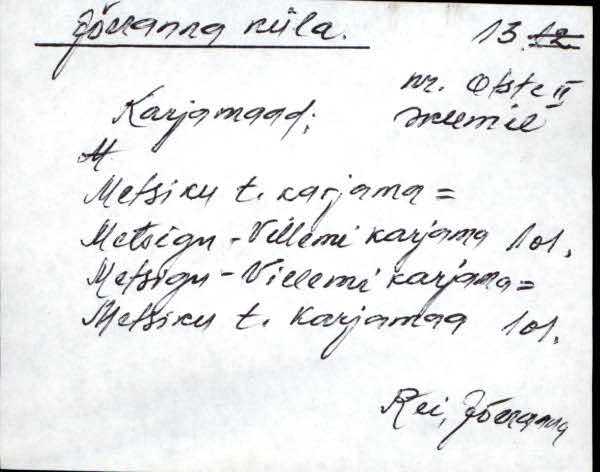 Jõeranna küla. 13. 12
nr.
Karjamaad;
M
Metsiku t. karjama =
Metsigu - Villemi karjama 1 ol.
Metsigu - Villemi karjama =
Metsiku t. karjamaa 1 ol.
Rei, Jõeranna